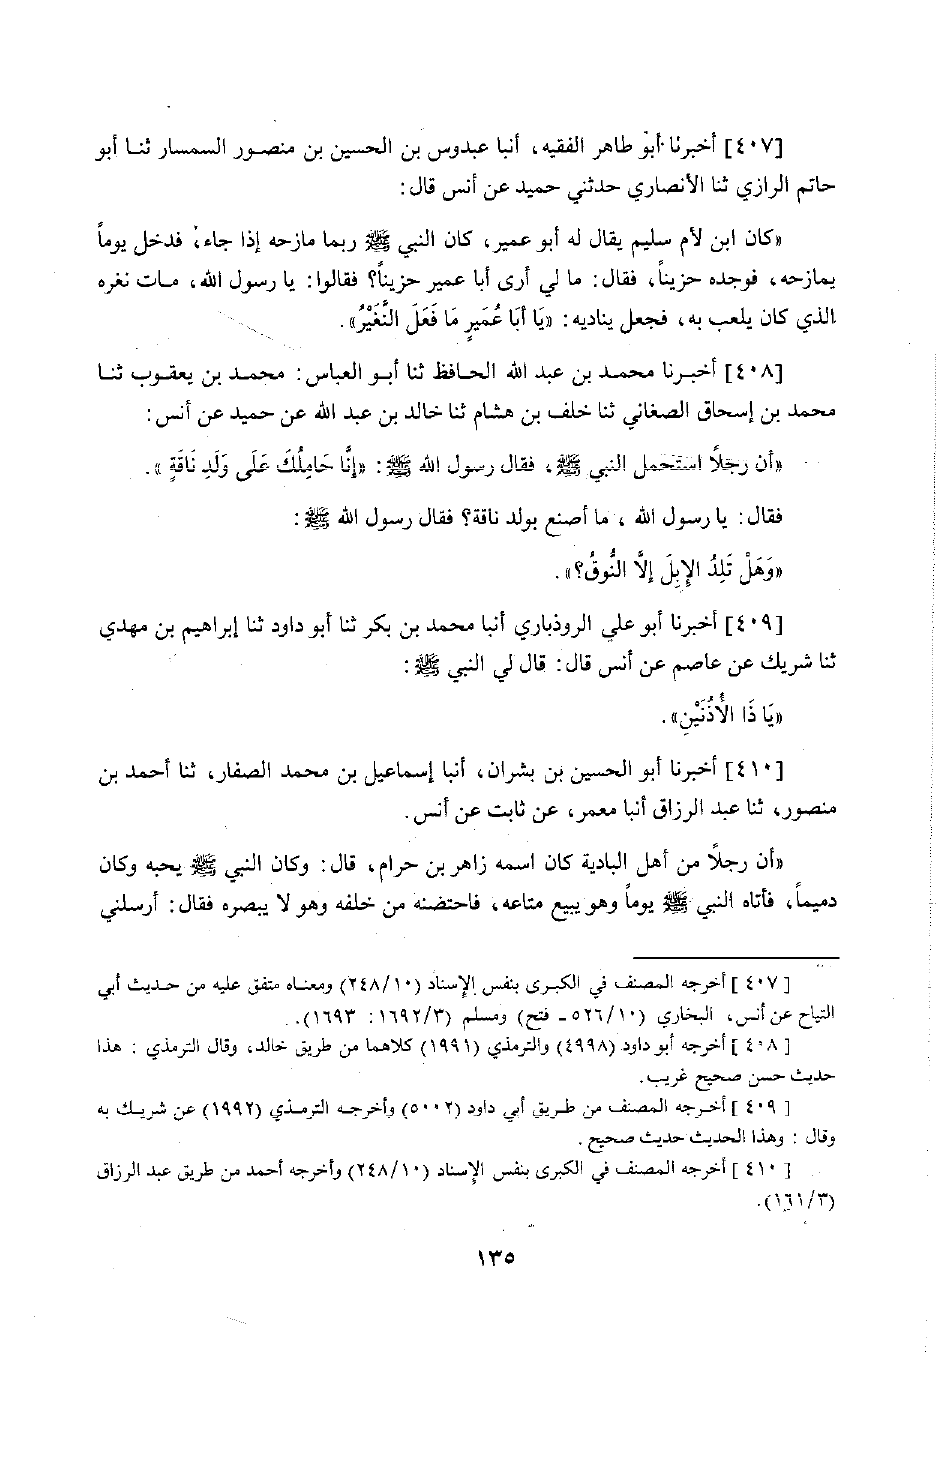 [٤٠٧] أخبرنا أبو طاهر الفقيه، أنبا عبدوس بن الحسين بن منصور السمسار ثنا أبو
حاتم الرازي ثنا الأنصاري حدثني حميد عن أنس قال:
«كان ابن لأم سليم يقال له أبو عمير، كان النبي ﷺ ربما مازحه إذا جاء، فدخل يوماً
يمازحه، فوجده حزيناً، فقال: ما لي أرى أبا عمير حزيناً؟ فقالوا: يا رسول الله، مات نغره
الذي كان يلعب به، فجعل يناديه: «يَا أَبَا عُمَيرٍ مَا فَعَلَ النُّغَيْرُ».
[٤٠٨] أخبرنا محمد بن عبد الله الحافظ ثنا أبو العباس: محمد بن يعقوب ثنا
محمد بن إسحاق الصغاني ثنا خلف بن هشام ثنا خالد بن عبد الله عن حميد عن أنس:
«أن رجلاً استحمل النبي ﷺ، فقال رسول الله ﷺ: «إِنَّا حَامِلُكَ عَلَى وَلَدِ نَاقَةٍ».
فقال: يا رسول الله، ما أصنع بولد ناقة؟ فقال رسول الله ﷺ:
«وَهَلْ تَلِدُ الإِبِلَ إِلَّا النُّوقُ؟».
[٤٠٩] أخبرنا أبو علي الروذباري أنبا محمد بن بكر ثنا أبو داود ثنا إبراهيم بن مهدي
ثنا شريك عن عاصم عن أنس قال: قال لي النبي ﷺ:
«يَا ذَا الأُذُنَيْنِ».
[٤١٠] أخبرنا أبو الحسين بن بشران، أنبا إسماعيل بن محمد الصفار، ثنا أحمد بن
منصور، ثنا عبد الرزاق أنبا معمر، عن ثابت عن أنس.
«أن رجلاً من أهل البادية كان اسمه زاهر بن حرام، قال: وكان النبي ﷺ يحبه وكان
دميماً، فأتاه النبي ﷺ يوماً وهو يبيع متاعه، فاحتضنه من خلفه وهو لا يبصره فقال: أرسلني
[٤٠٧] أخرجه المصنف في الكبرى بنفس الإسناد (٢٤٨/١٠) ومعناه متفق عليه من حديث أبي
التياح عن أنس، البخاري (٥٢٦/١٠ - فتح) ومسلم (١٦٩٢/٣: ١٦٩٣).
[٤٠٨] أخرجه أبو داود (٤٩٩٨) والترمذي (١٩٩١) كلاهما من طريق خالد، وقال الترمذي: هذا
حديث حسن صحيح غريب.
[٤٠٩] أخرجه المصنف من طريق أبي داود (٥٠٠٢) وأخرجه الترمذي (١٩٩٢) عن شريك به
وقال: وهذا الحديث حديث صحيح.
[٤١٠] أخرجه المصنف في الكبرى بنفس الإسناد (٢٤٨/١٠) وأخرجه أحمد من طريق عبد الرزاق
(١٦١/٣).
١٣٥